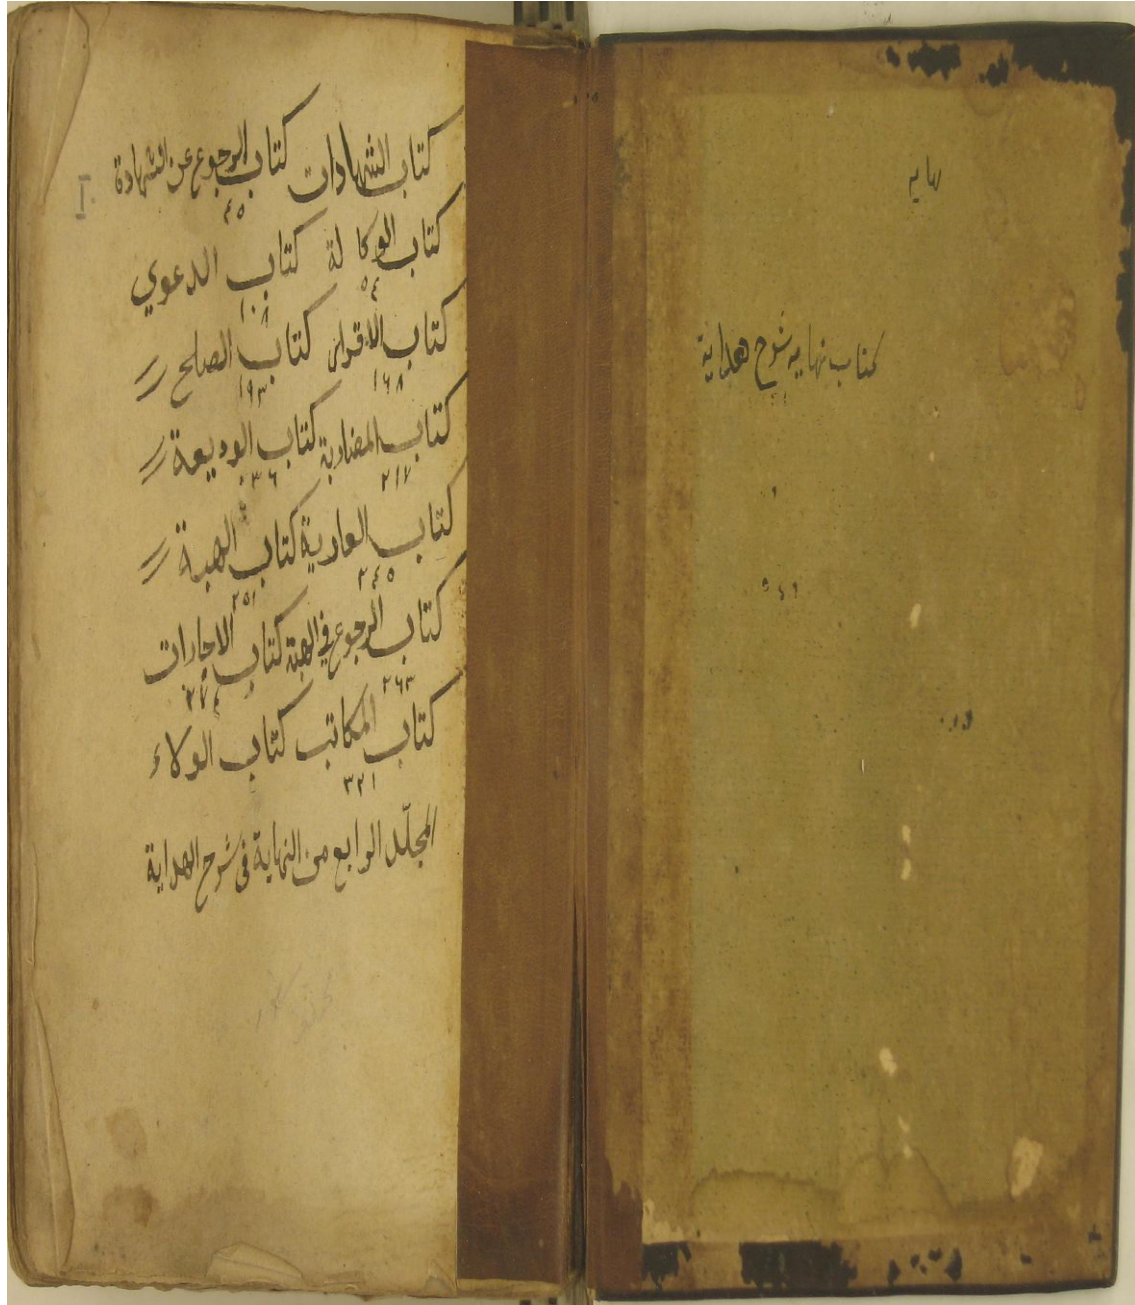 كتاب نهايه شرح هداية
كتاب الشهادات كتاب الرجوع عن الشهادة
٤٥
كتاب الوكالة كتاب الدعوي
٥٤ ١٠٨
كتاب الاقرار كتاب الصلح
١٦٨ ١٩٣
كتاب المضاربة كتاب الوديعة
٢١٧ ٢٣٦
كتاب العارية كتاب الهبة
٢٤٥ ٢٥١
كتاب الرجوع في الهبة كتاب الاجارات
٢٦٣ ٢٧٤
كتاب المكاتب كتاب الولاء
٣٢١
المجلّد الرابع من النهاية في شرح الهداية